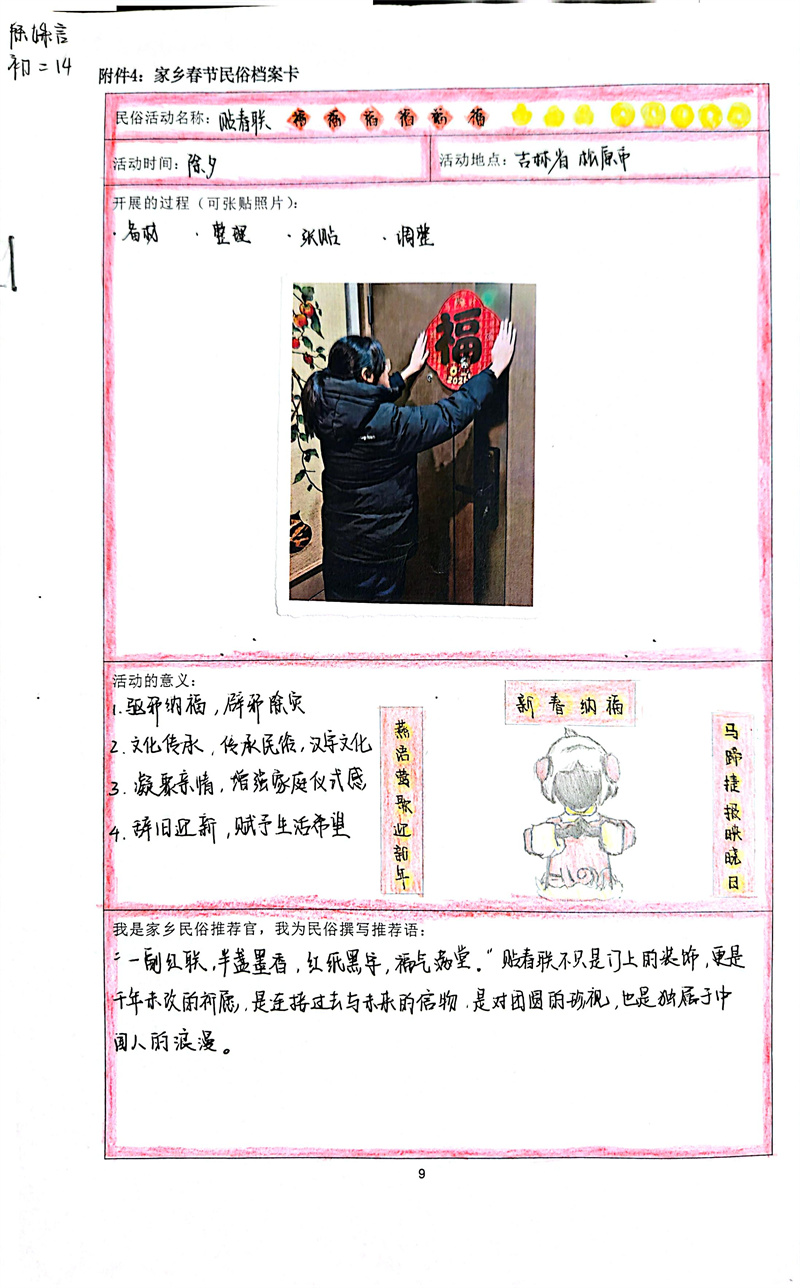 初二14
附件4：家乡春节民俗档案卡
民俗活动名称：贴春联 福 福 福 福 福 福
活动时间：除夕
活动地点：吉林省 松原市
开展的过程（可张贴照片）：
·备材 ·整理 ·张贴 ·调整
福
活动的意义：
1.驱邪纳福，辟邪除灾
2.文化传承，传承民俗，汉字文化
3.凝聚亲情，增强家庭仪式感
4.辞旧迎新，赋予生活希望
新春纳福
燕语莺歌迎新年
马蹄捷报映晓日
我是家乡民俗推荐官，我为民俗撰写推荐语：
“一副红联，半盏墨香，红纸黑字，福气满堂。”贴春联不只是门上的装饰，更是
千年未改的祈愿，是连接过去与未来的信物，是对团圆的珍视，也是独属于中
国人的浪漫。
9